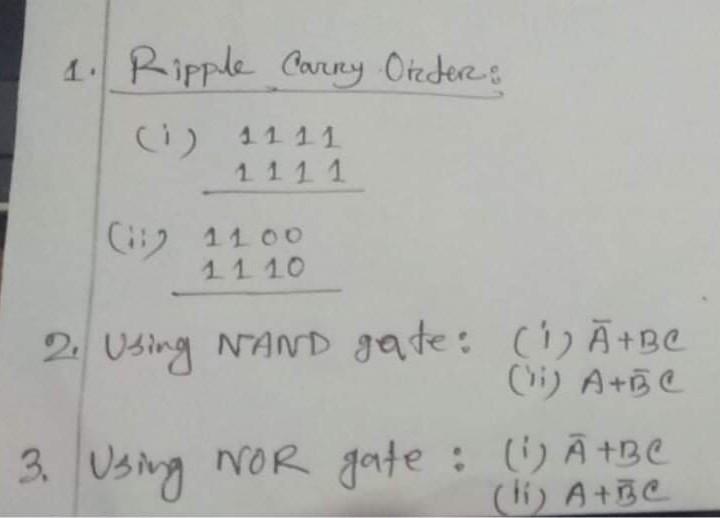 1. Ripple Carry Order:
(i) 1111
1111
(ii) 1100
1110
2. Using NAND gate: (i) Ā+BC
(ii) A+B̄C
3. Using NOR gate: (i) Ā+BC
(ii) A+B̄C